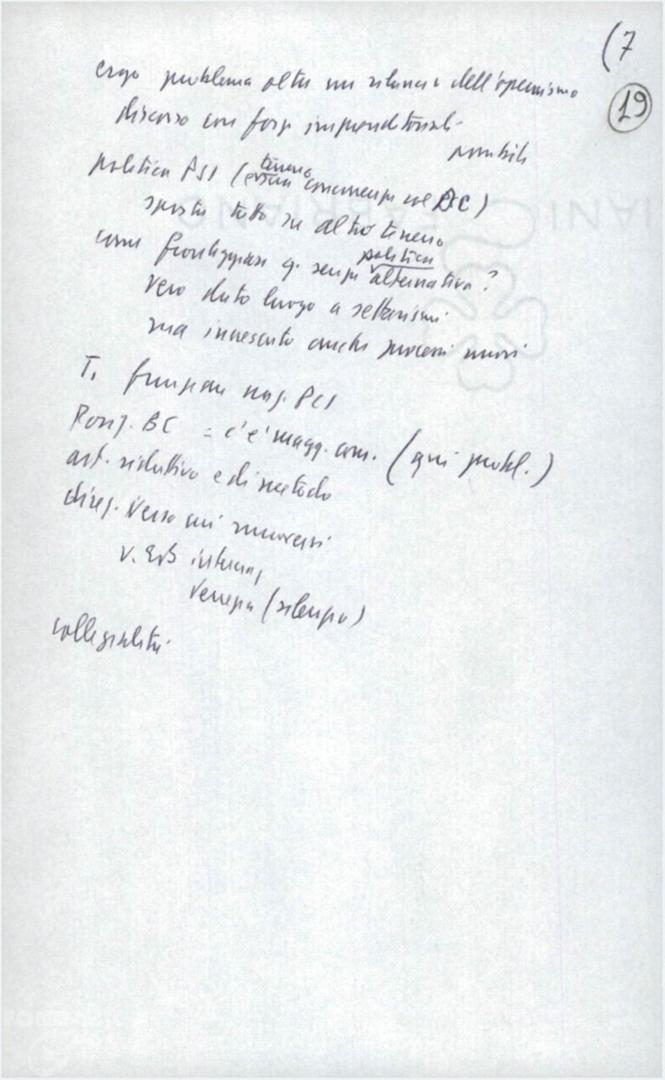 (7
19
ergo problema oltre un rilancio dell'operaismo
discorso con forze imprenditoriali
possibile
politica PSI (terreno concorrenza col DC)
sposta tutto su altro terreno
come fronteggiare q. senza politica alternativa?
vero dato luogo a settarismi
ma innescato anche processi nuovi
T. funzione naz. PCI
Ronz. BC = c'è magg. com. (qui probl.)
art. riduttivo e di metodo
direz. verso cui muoversi
v. EvB
Venezia (silenzio)
collegialità